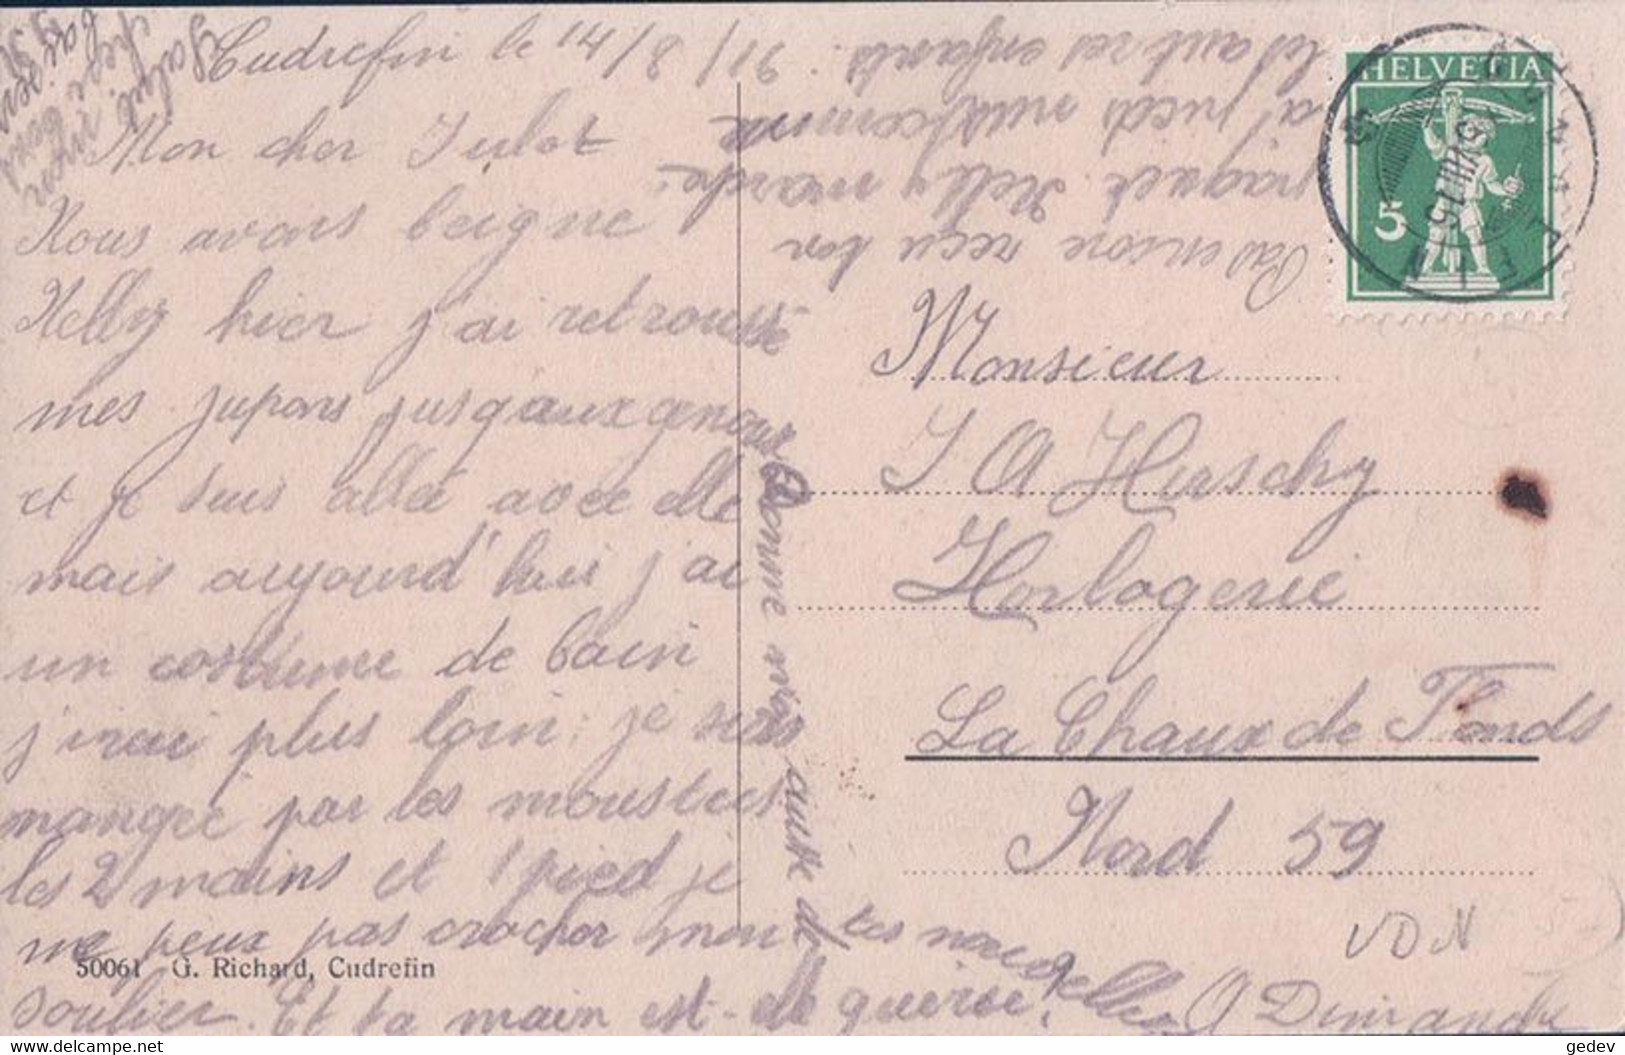 Cudrefin le 14/8/16
Mon cher Julot
Nous avons beigné
Nelly hier j'ai retroussé
mes jupons jusqaux genoux
et je suis allé avec elle
mais aujourd'hui j'ai
un costume de bain
j'irai plus loin. je suis
mangée par les moustics
les 2 mains et 1 pied je
ne peux pas crocher mon
soulier. Et ta main est-elle guérie?
Donne moi aussi de tes nouvelles
A Dimanche
Pas encore reçu ton
paquet. Nelly marche
à pieds nus comme
les autres enfants.
Salut
baiser
HELVETIA
5
Monsieur
J A Huschy
Horlogerie
La Chaux de Fonds
Nord 59
VDN
50061 G. Richard, Cudrefin
gedev